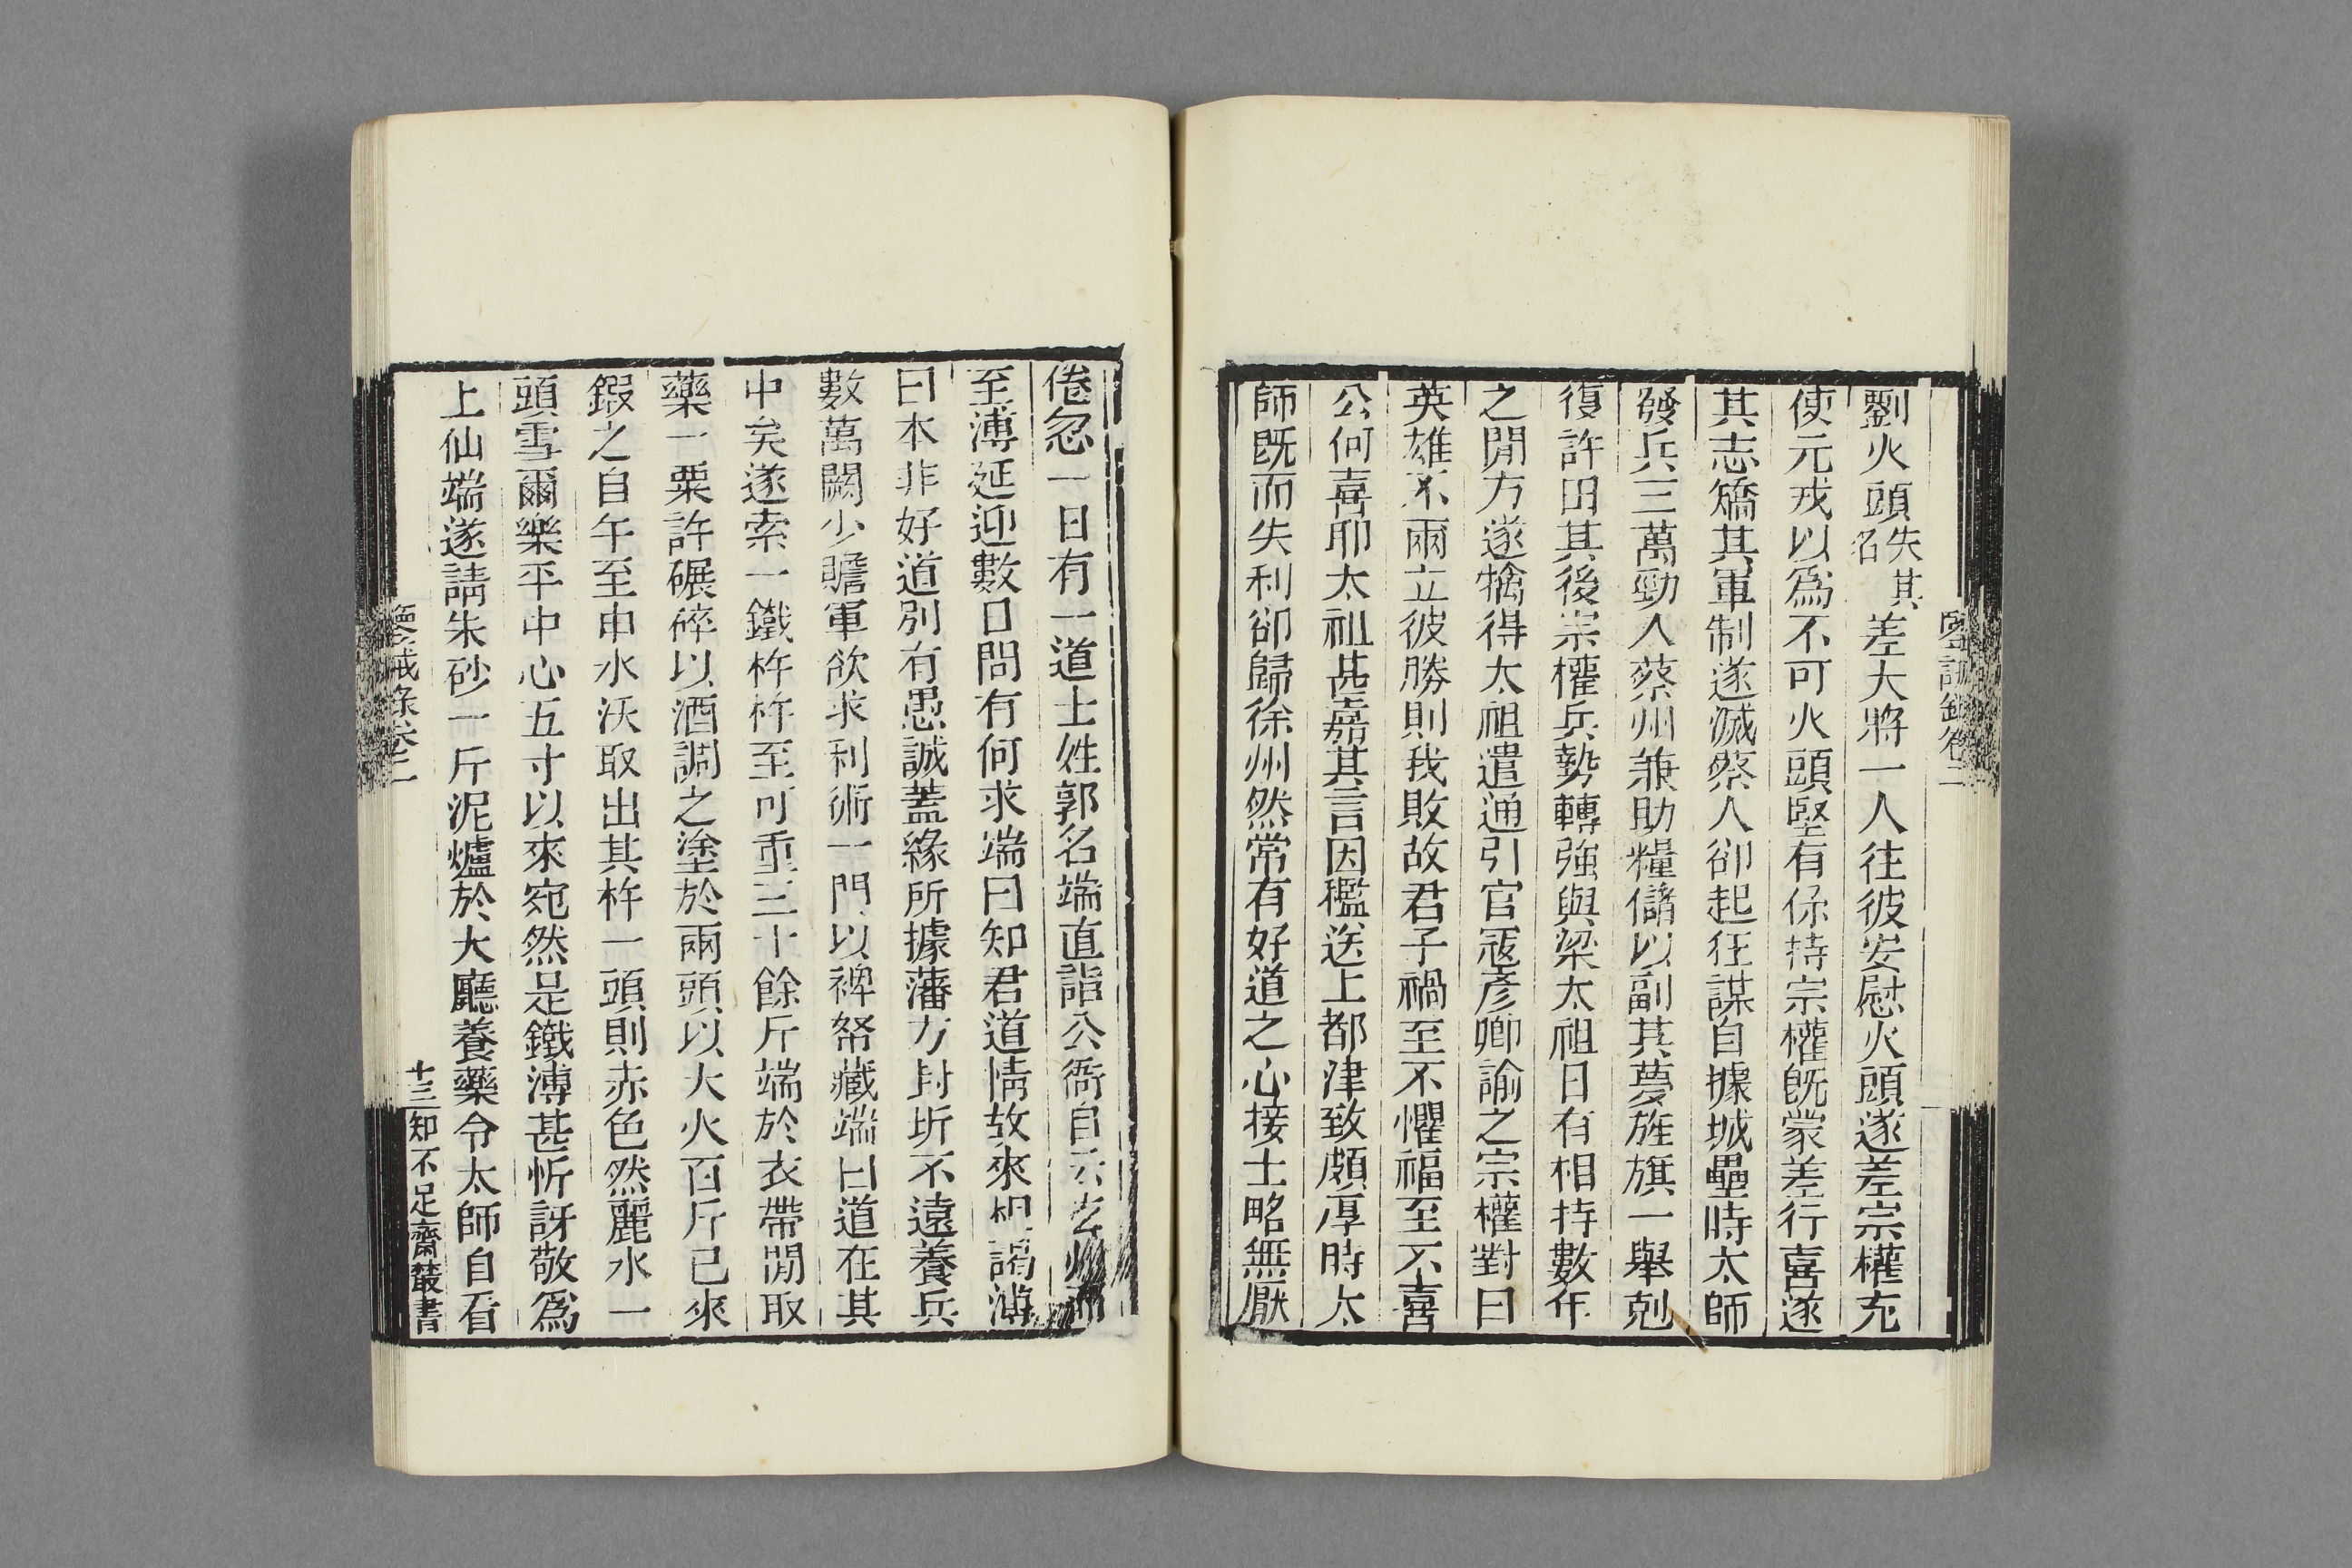 劉火頭失其名差大將一人往彼安慰火頭遂差宗權充
使元戎以爲不可火頭堅有保持宗權旣蒙差行喜遂
其志矯其軍制遂滅蔡人卻起狂謀自據城壘時太師
發兵三萬勁人蔡州兼助糧儲以副其夢旌旗一舉剋
復許田其後宗權兵勢轉強與梁太祖日有相持數年
之閒方遂擒得太祖遣通引官寇彥卿諭之宗權對曰
英雄不兩立彼勝則我敗故君子禍至不懼福至不喜
公何喜耶太祖甚嘉其言因檻送上都津致頗厚時太
師旣而失利卻歸徐州然常有好道之心接士略無厭
倦忽一日有一道士姓郭名端直詣公衙自云玄州
至溥延迎數日問有何求端曰知君道情故來相謁溥
曰本非好道別有愚誠蓋緣所據藩方封圻不遠養兵
數萬闕少贍軍欲求利術一門以裨帑藏端曰道在其
中矣遂索一鐵杵杵至可重三十餘斤端於衣帶閒取
藥一粟許碾碎以酒調之塗於兩頭以大火百斤已來
鍜之自午至申水沃取出其杵一頭則赤色然麗水一
頭雪爾樂平中心五寸以來宛然是鐵溥甚忻訝敬爲
上仙端遂請朱砂一斤泥爐於大廳養藥令太師自看
鑒誡錄卷二
十三
知不足齋叢書